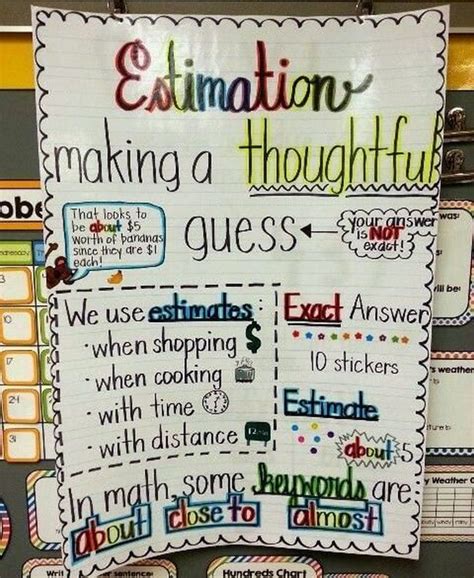 Estimation
making a thoughtful
guess
your answer
is NOT
exact!
That looks to
be about $5
worth of bananas
since they are $1
each!
We use estimates:
• when shopping $
• when cooking
• with time
• with distance
Exact Answer
10 stickers
Estimate
about 5
In math, some keywords are...
about close to almost
Hundreds Chart